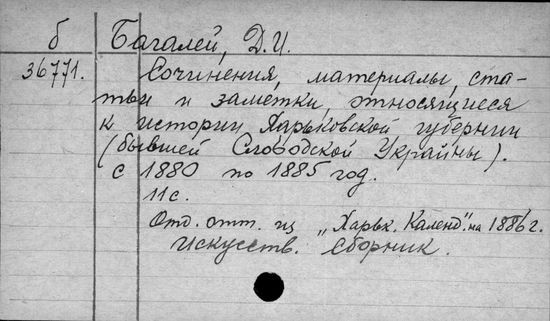 б Багалей, Д.И.
36771. Сочинения, материалы, ста-
тьи и заметки, относящиеся
к истории Харьковской губернии
(бывшей Слободской Украйны).
с 1880 по 1885 год.
11 с.
Отд. отт. из „Харьк. Календ." на 1886 г.
Искусств. сборник.